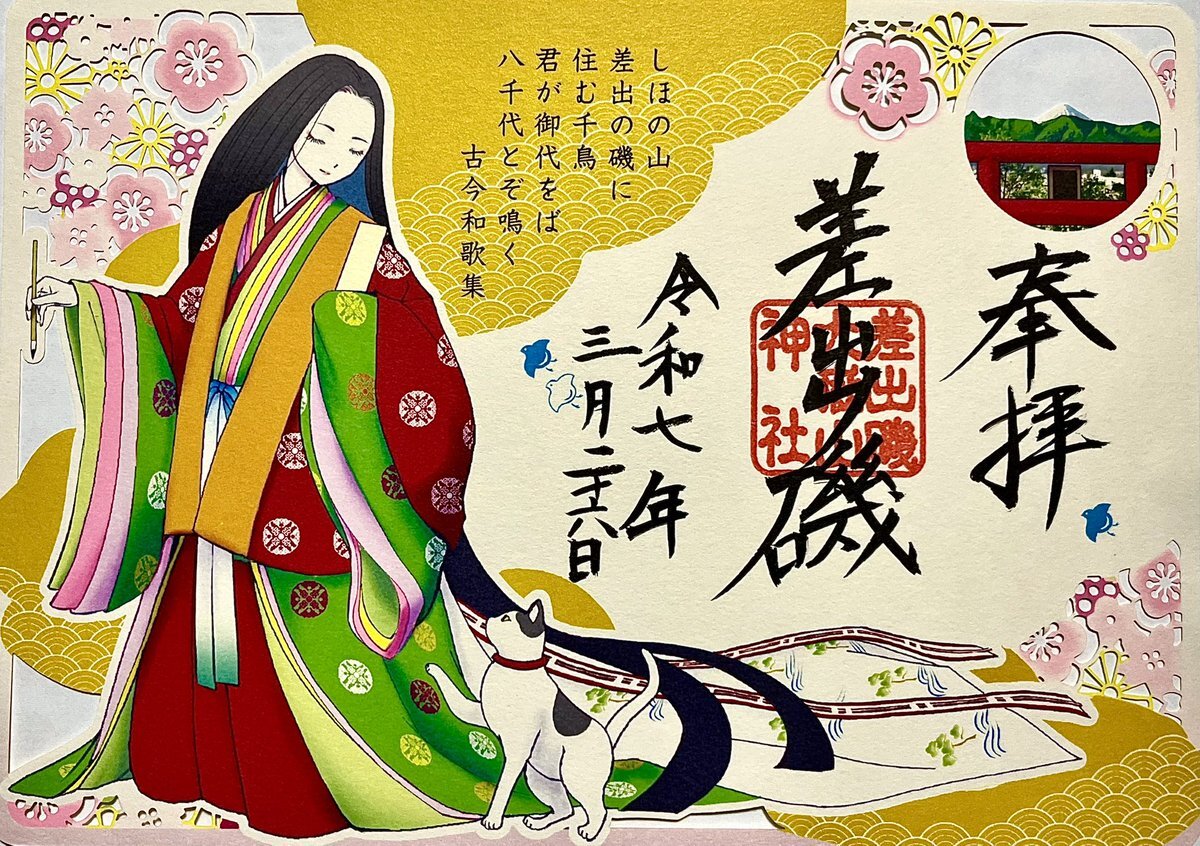 奉拝
差出磯
差出磯
大嶽山
神社
令和七年
三月二十八日
しほの山
差出の磯に
住む千鳥
君が御代をば
八千代とぞ鳴く
古今和歌集